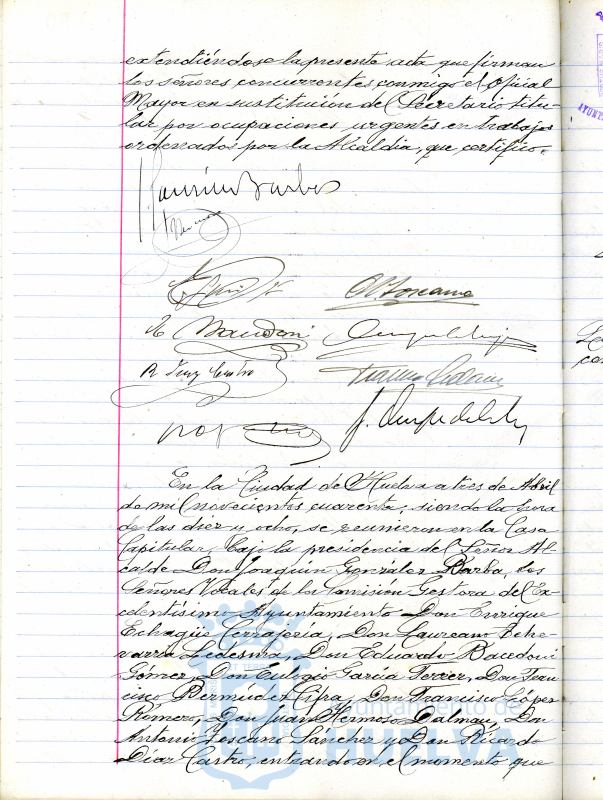 extendiéndose la presente acta que firman
los señores concurrentes conmigo el Oficial
Mayor en sustitucion del Secretario titu-
lar por ocupaciones urgentes en trabajos
ordenados por la Alcaldia, que certifico.
En la Ciudad de Huelva a tres de Abril
de mil novecientos cuarenta, siendo la hora
de las diez y ocho, se reunieron en la Casa
Capitular, bajo la presidencia del Señor Al-
calde Don Joaquín González Barba, los
Señores Vocales de la Comision Gestora del Ex-
celentísimo Ayuntamiento Don Enrique
Echagüe Terrajería, Don Laureano Eche-
varria Ledesma, Don Eduardo Bacedoni
Gómez, Don Eulogio Garcia Terrer, Don Fran-
cisco Bermúdez Cipra, Don Francisco López
Romero, Don Juan Hermoso Dalmau, Don
Antonio Toscano Sánchez y Don Ricardo
Díaz Castro, entrando en el momento que
Ayuntamiento de
HUELVA